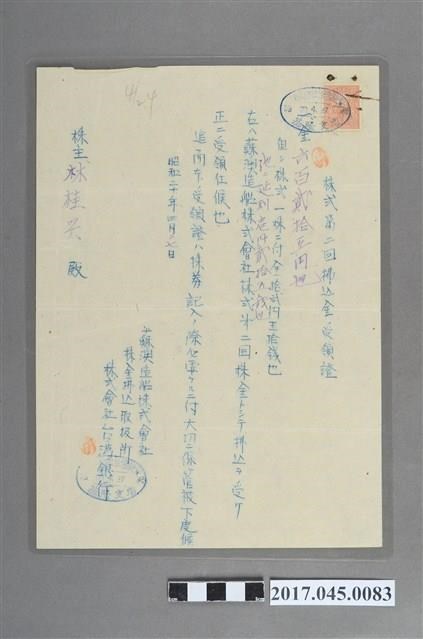 4/24
株式第二回拂込金受領證
一金貳百貳拾五円也
但シ株式一株ニ付金拾貳円五拾錢也
右ハ蘇澳造船株式會社株式第二回株金トシテ拂込ヲ受ケ
正ニ受領仕候也
追而本受領證ハ株券記入ノ際必要ニ付大切ニ保管被下度候
昭和二十年四月 七日
株主林桂 殿
蘇澳造船株式會社
株金拂込取扱所
株式會社台湾銀行
2017.045.0083